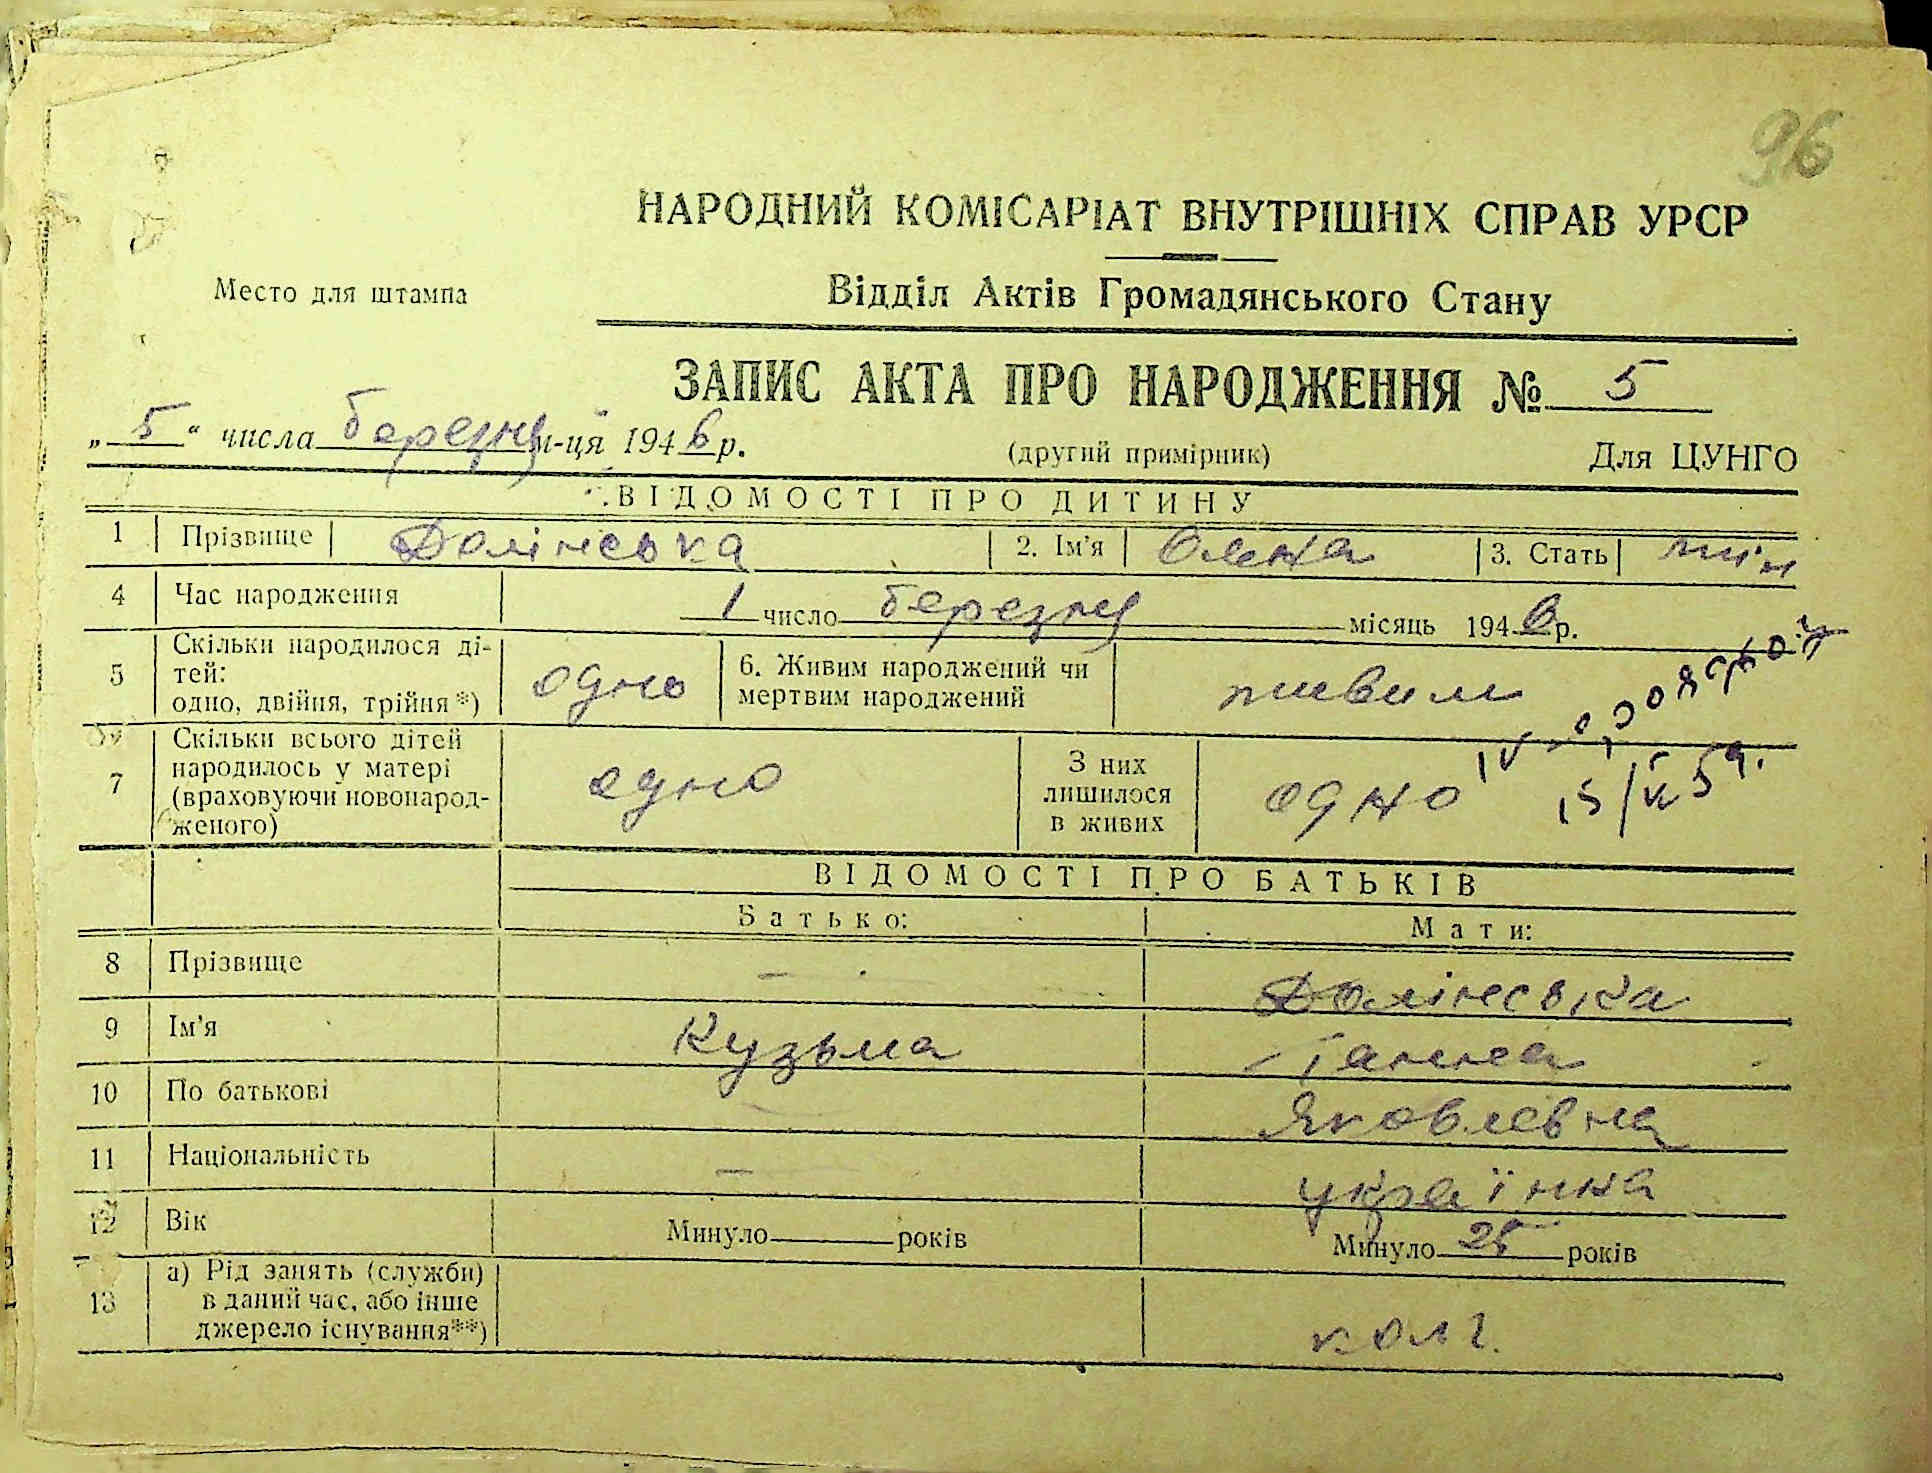 96
НАРОДНИЙ КОМІСАРІАТ ВНУТРІШНІХ СПРАВ УРСР
Место для штампа
Відділ Актів Громадянського Стану
ЗАПИС АКТА ПРО НАРОДЖЕННЯ № 5
„5“ числа березня м-ця 1946 р.
(другий примірник)
Для ЦУНГО
ВІДОМОСТІ ПРО ДИТИНУ
1 Прізвище Долінська 2. Ім'я Олена 3. Стать жін
4 Час народження 1 число березня місяць 1946 р.
5 Скільки народилося ді-
тей:
одно, двійня, трійня*) одно 6. Живим народжений чи
мертвим народжений живим
7 Скільки всього дітей
народилось у матері
(враховуючи новонарод-
женого) одно З них
лишилося
в живих одно
ВІДОМОСТІ ПРО БАТЬКІВ
Батько: Мати:
8 Прізвище — Долінська
9 Ім'я Кузьма Ганна
10 По батькові Яковлевна
11 Національність — українка
12 Вік Минуло років Минуло 25 років
13 а) Рід занять (служби)
в даний час, або інше
джерело існування**) колг.